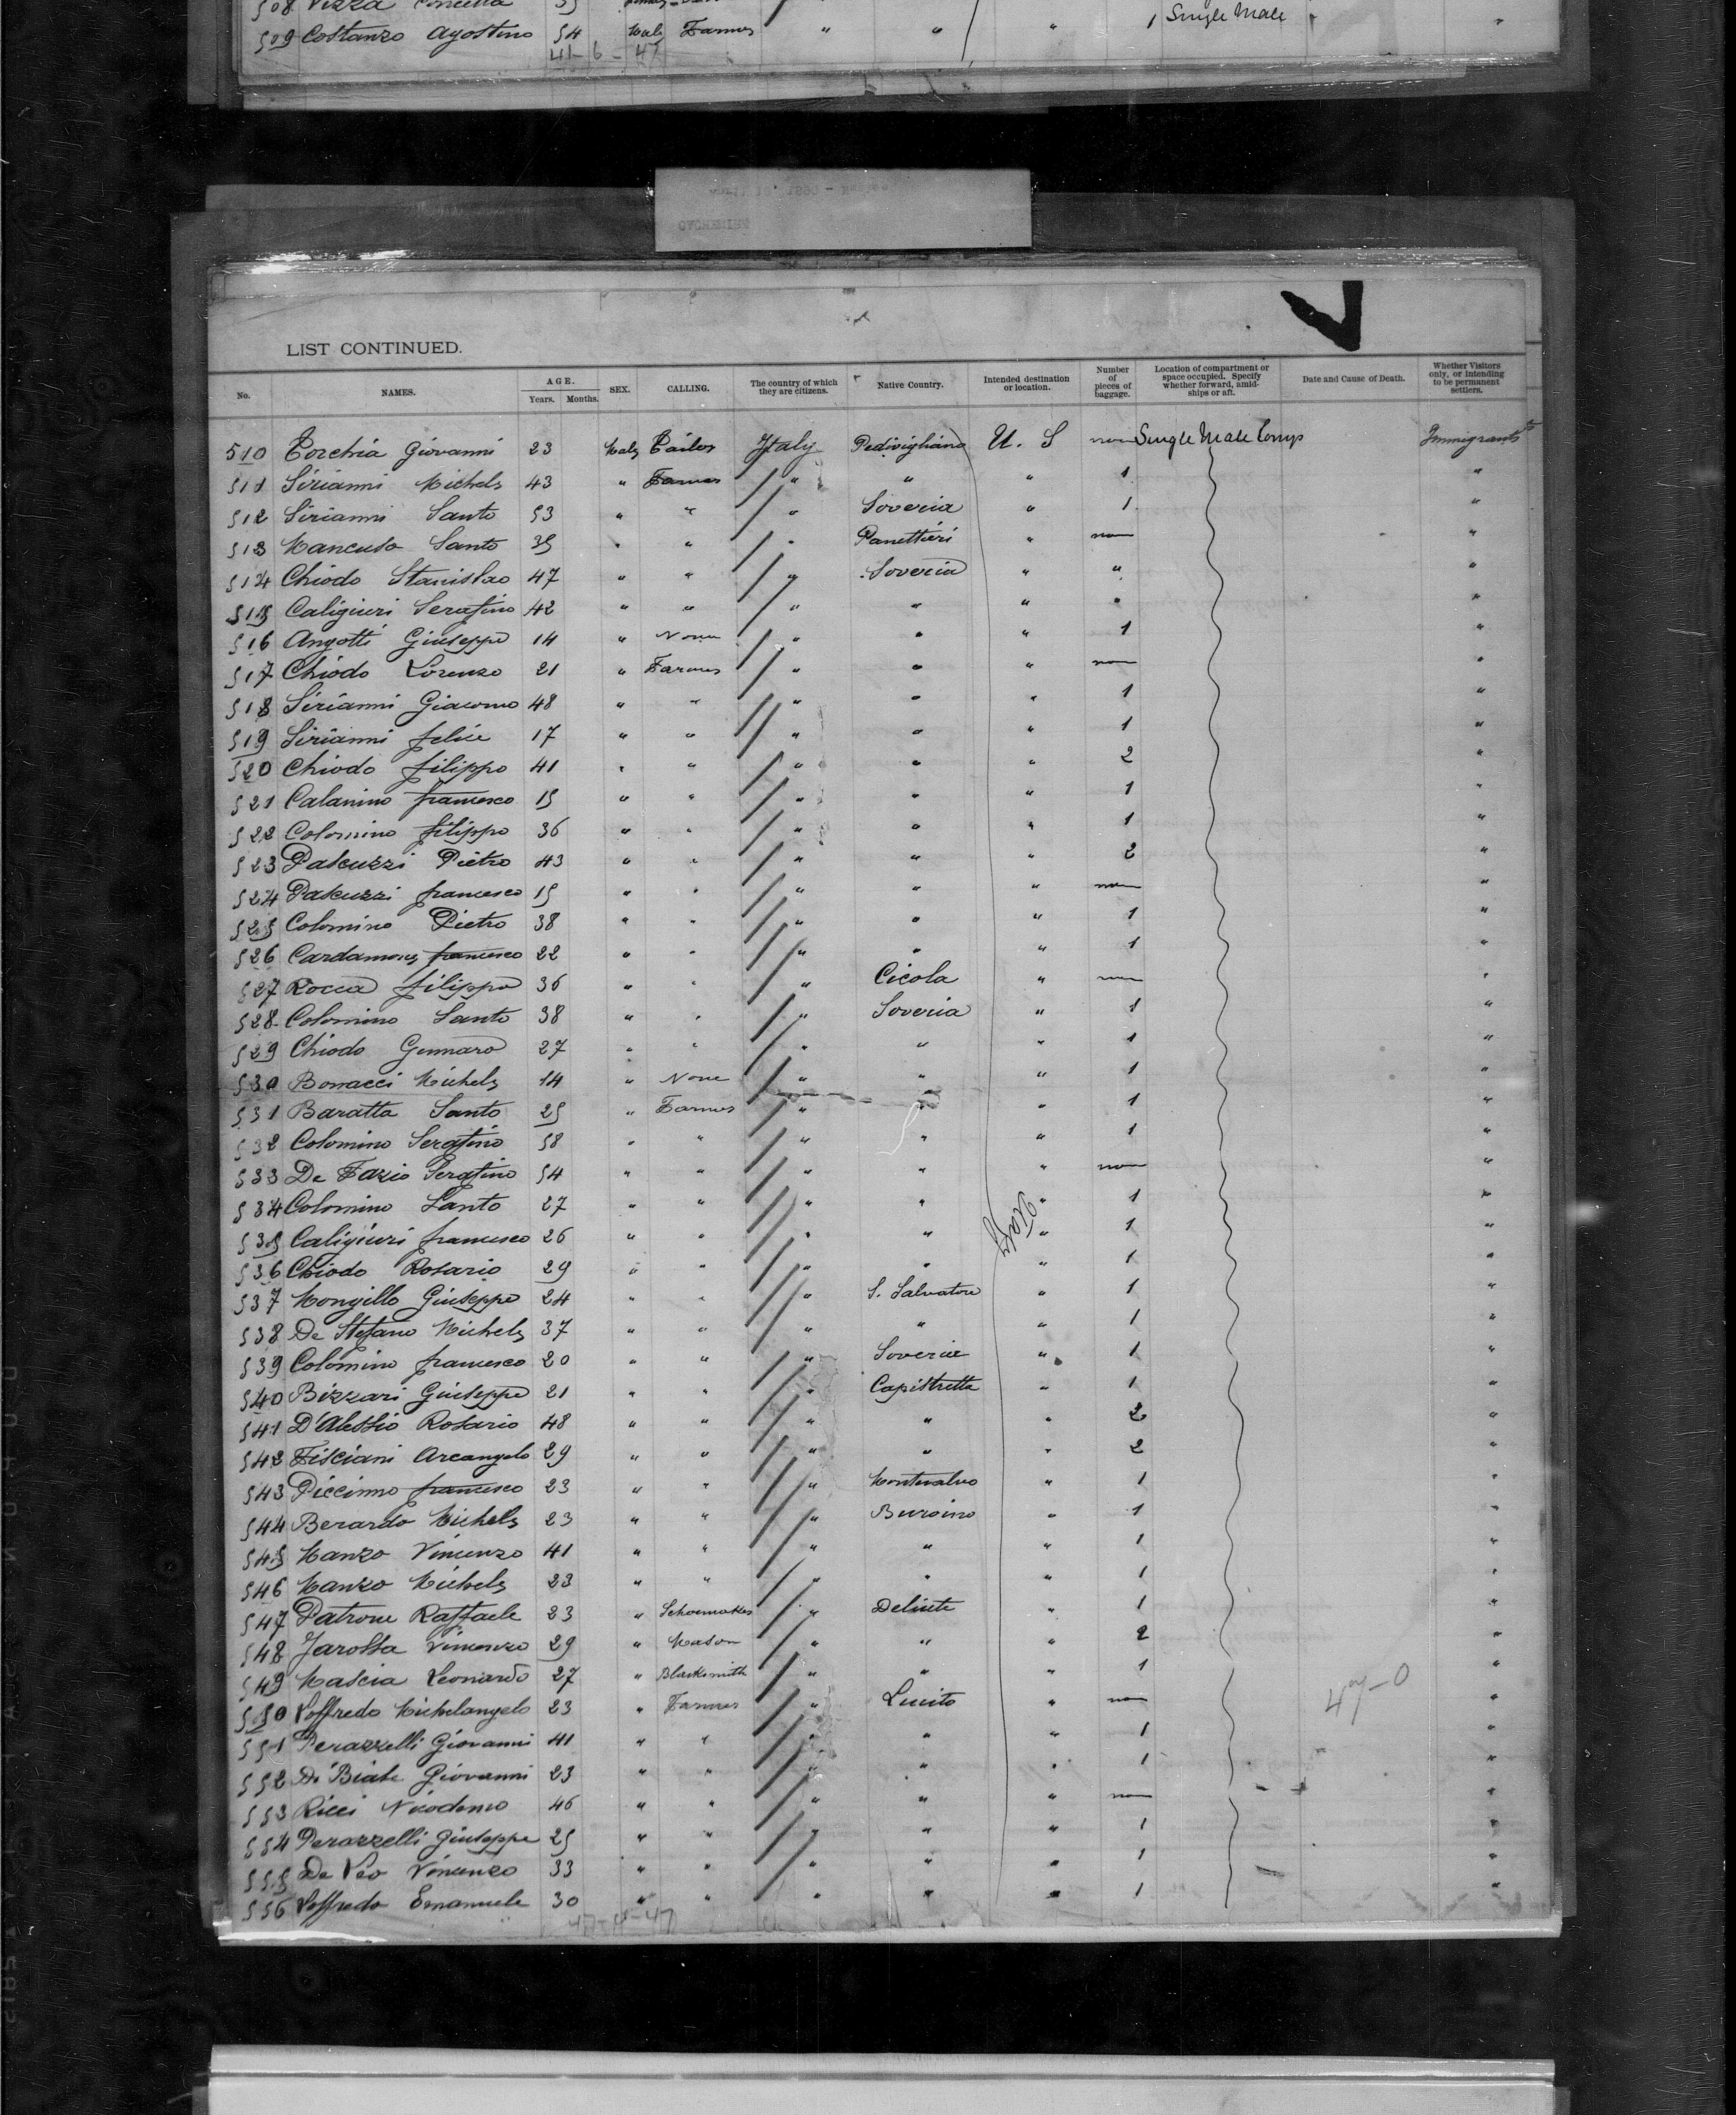 508 Vizza Concetta
509 Costanzo Agostino 54 Male Farmer " " " 1 Single Male "
41-6-47
LIST CONTINUED.
No. NAMES. AGE. Years. Months. SEX. CALLING. The country of which they are citizens. Native Country. Intended destination or location. Number of pieces of baggage. Location of compartment or space occupied. Specify whether forward, amidships or aft. Date and Cause of Death. Whether Visitors only, or intending to be permanent settlers.
510 Torchia Giovanni 23 Male Tailor Italy Pedivigliano U. S non Single Male Comp Immigrants
511 Sirianni Michele 43 " Farmer " " " 1 "
512 Sirianni Santo 53 " " " Soveria " 1 "
513 Mancuso Santo 35 " " " Panettieri " non "
514 Chiodo Stanislao 47 " " " Soveria " " "
515 Caligiuri Serafino 42 " " " " " " "
516 Angotti Giuseppe 14 " None " " " 1 "
517 Chiodo Lorenzo 21 " Farmer " " " non "
518 Sirianni Giacomo 48 " " " " " 1 "
519 Sirianni felice 17 " " " " " 1 "
520 Chiodo filippo 41 " " " " " 2 "
521 Calanino francesco 15 " " " " " 1 "
522 Colomino filippo 36 " " " " " 1 "
523 Pascuzzi Pietro 43 " " " " " 2 "
524 Pascuzzi francesco 15 " " " " " non "
525 Colomino Pietro 38 " " " " " 1 "
526 Cardamone francesco 22 " " " " " 1 "
527 Rocca filippo 36 " " " Cicola " non "
528 Colomino Santo 38 " " " Soveria " 1 "
529 Chiodo Gennaro 27 " " " " " 1 "
530 Bonacci Michele 14 " None " " " 1 "
531 Baratta Santo 25 " Farmer " " " 1 "
532 Colomino Serafino 58 " " " " " 1 "
533 De Fazio Serafino 54 " " " " " non "
534 Colomino Santo 27 " " " " " 1 "
535 Caligiuri francesco 26 " " " " " 1 "
536 Chiodo Rosario 29 " " " " " 1 "
537 Mongillo Giuseppe 24 " " " S. Salvatore " 1 "
538 De Stefano Michele 37 " " " " " 1 "
539 Colomino francesco 20 " " " Soveria " 1 "
540 Bizzari Giuseppe 21 " " " Capistretta " 1 "
541 D'Alessio Rosario 48 " " " " " 2 "
542 Fisciani Arcangelo 29 " " " " " 2 "
543 Piccinno francesco 23 " " " " 1 "
544 Berardo Michele 23 " " " Buroino " 1 "
545 Manzo Vincenzo 41 " " " " " 1 "
546 Manzo Michele 23 " " " " " 1 "
547 Patrone Raffaele 23 " Schoemaker " Deliute " 1 "
548 Jarossa Vincenzo 29 " Mason " " " 2 "
549 Mascia Leonardo 27 " Blacksmith " " " 1 "
550 Soffredo Michelangelo 23 " Farmer " Lucito " non "
551 Perazzelli Giovanni 41 " " " " " 1 "
552 Di Biase Giovanni 23 " " " " " 1 "
553 Ricci Nicodemo 46 " " " " " non "
554 Perazzelli Giuseppe 25 " " " " " 1 "
555 De Leo Vincenzo 33 " " " " " 1 "
556 Soffredo Emanuele 30 " " " " " 1 "